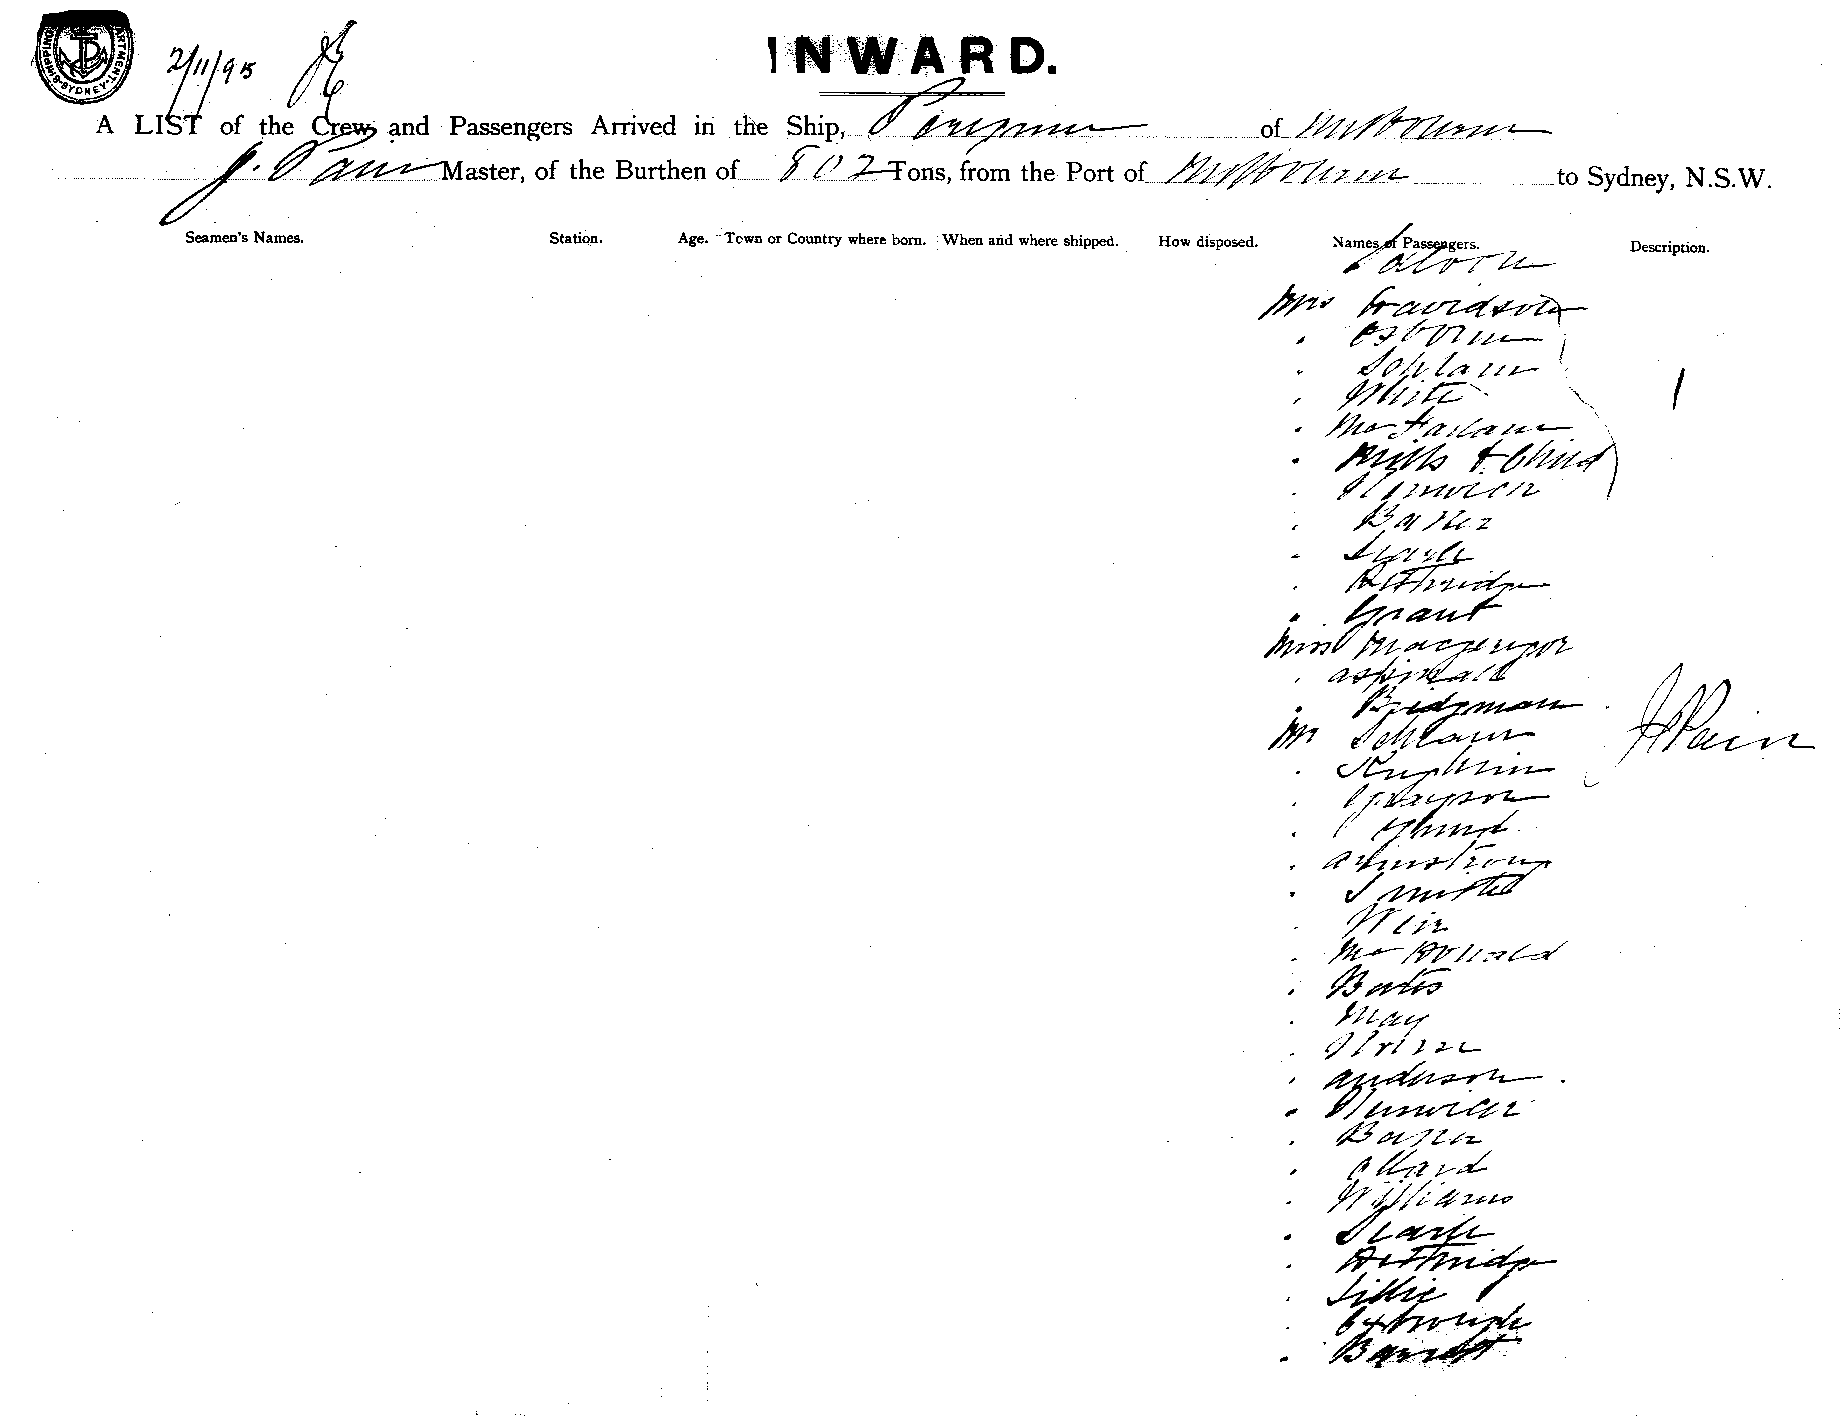 SHIPPING DEPARTMENT SYDNEY
2/11/95
INWARD.
A LIST of the Crew and Passengers Arrived in the Ship, Peregrine of Melbourne
J. Pain Master, of the Burthen of 802 Tons, from the Port of Melbourne to Sydney, N.S.W.
Seamen's Names. Station. Age. Town or Country where born. When and where shipped. How disposed. Names of Passengers. Description.
Saloon
Mrs Davidson
" Osborne
"
" White
" McFarlane
" Mills & Child
" Fenwick
" Baker
" Searle
" Hethridge
" Grant
Miss Macgregor
" Aspinall
" Bridgman
Mr
"
" Grayson
"
" Armstrong
" Smith
" Weir
" McDonald
" Bates
" May
" Horne
" Anderson
" Fenwick
" Baker
" Allard
" Williams
" Searle
" Hethridge
" Lillie
"
" Barrett
J Pain